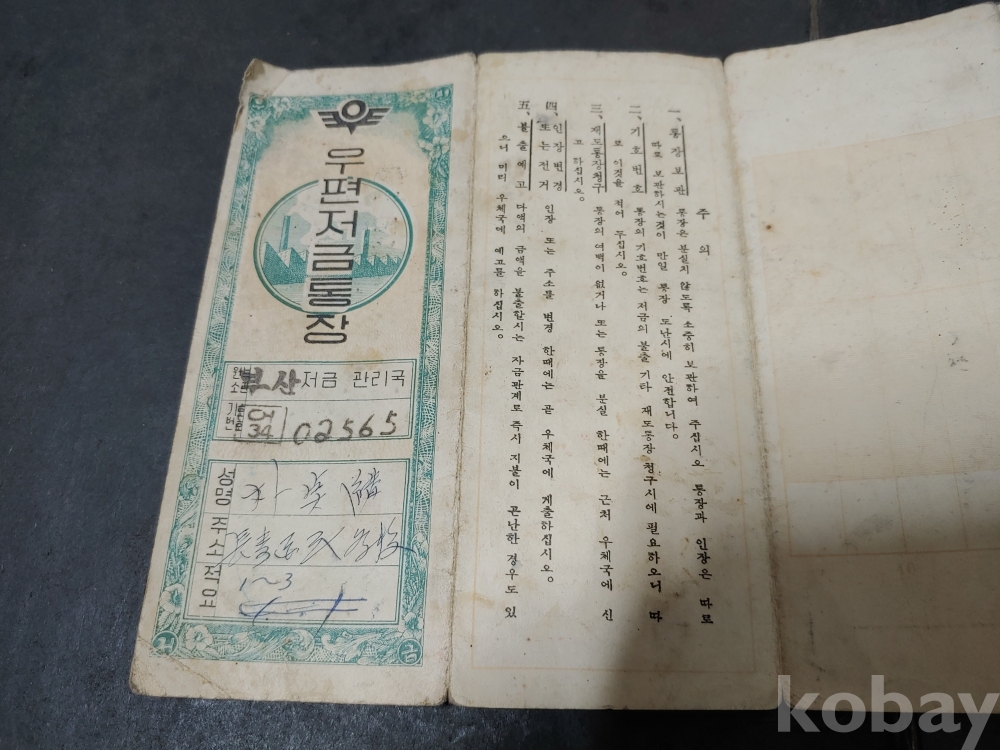 우편저금통장
원부
소관
부산 저금 관리국
기호
번호
여
34
02565
성명
주소
직업
1~3
주 의
一、통 장 보 관 통장은 분실치 않도록 소중히 보관하여 주십시오 통장과 인장은 따로
따로 보관하시는것이 만일 통장 도난시에 안전합니다。
二、기 호 번 호 통장의 기호번호는 저금의 불출 기타 재도통장 청구시에 필요하오니 따
로 이것을 적어 두십시오。
三、재도통장청구 통장의 여백이 없거나 또는 통장을 분실 한때에는 근처 우체국에 신
고 하십시오。
四、인 장 변 경
또 는 전 거 인장 또는 주소를 변경 한때에는 곧 우체국에 계출하십시오。
五、불 출 예 고 다액의 금액을 불출할시는 자금관계로 즉시 지불이 곤난한 경우도 있
으니 미리 우체국에 예고를 하십시오。
저
금
kobay